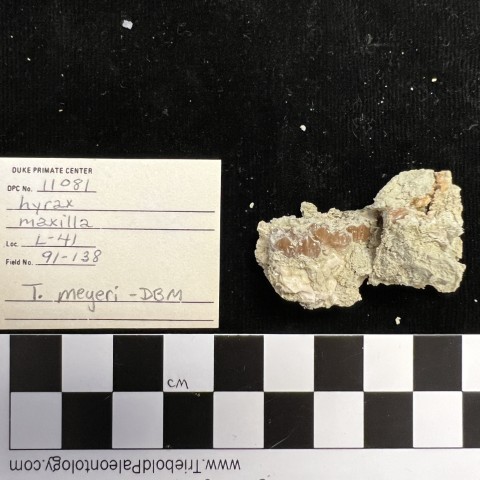 DUKE PRIMATE CENTER
DPC No. 11081
hyrax
maxilla
Loc. L-41
Field No. 91-138
T. meyeri - DBM
CM
www.TrieboldPaleontology.com